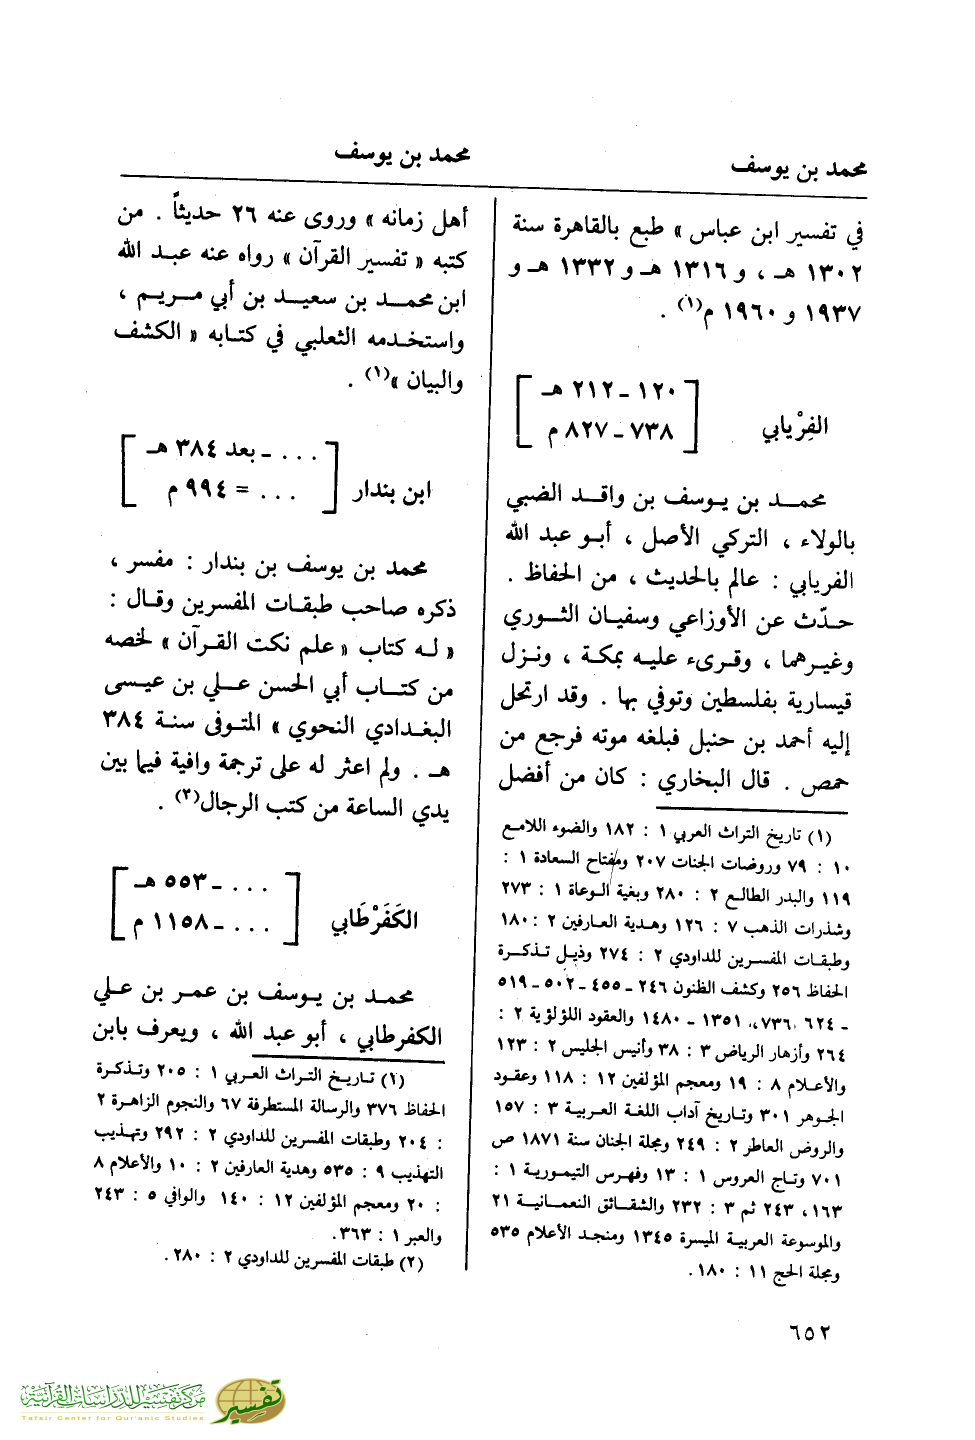 محمد بن يوسف
محمد بن يوسف
في تفسير ابن عباس » طبع بالقاهرة سنة
١٣٠٢ هـ ، و ١٣١٦ هـ و ١٣٣٢ هـ و
١٩٣٧ و ١٩٦٠ م(١) .
١٢٠ ـ ٢١٢ هـ
الفِرْيابي
٧٣٨ ـ ٨٢٧ م
محمـد بن يـوسف بن واقـد الضبي
بالولاء ، التركي الأصل ، أبـو عبد الله
الفريابي : عالم بالحديث ، من الحفاظ .
حدّث عن الأوزاعي وسفيـان الثـوري
وغيـرهما ، وقرىء عليـه بمكة ، ونـزل
قيسارية بفلسطين وتوفي بها . وقد ارتحل
إليه أحمد بن حنبل فبلغه موته فرجع من
حمص . قال البخاري : كان من أفضل
(١) تاريخ التراث العربي ١ : ١٨٢ والضوء اللامع
١٠ : ٧٩ وروضات الجنات ٢٠٧ ومفتاح السعادة ١ :
١١٩ والبدر الطالع ٢ : ٢٨٠ وبغية الوعاة ١ : ٢٧٣
وشذرات الذهب ٧ : ١٢٦ وهدية العارفين ٢ : ١٨٠
وطبقات المفسرين للداودي ٢ : ٢٧٤ وذيل تذكرة
الحفاظ ٢٥٦ وكشف الظنون ٢٤٦ ـ ٤٥٥ ـ ٥٠٢ ـ ٥١٩
ـ ٦٢٤ ، ٧٣٦، ١٣٥١ ـ ١٤٨٠ والعقود اللؤلؤية ٢ :
٢٦٤ وأزهار الرياض ٣ : ٣٨ وأنيس الجليس ٢ : ١٢٣
والأعلام ٨ : ١٩ ومعجم المؤلفين ١٢ : ١١٨ وعقود
الجوهر ٣٠١ وتاريخ آداب اللغة العربية ٣ : ١٥٧
والروض العاطر ٢ : ٢٤٩ ومجلة الجنان سنة ١٨٧١ ص
٧٠١ وتاج العروس ١ : ١٣ وفهرس التيمورية ١ :
١٦٣، ٢٤٣ ثم ٣ : ٢٣٢ والشقائق النعمـانيـة ٢١
والموسوعة العربية الميسرة ١٣٤٥ ومنجد الأعلام ٥٣٥
ومجلة الحج ١١ : ١٨٠.
أهل زمانه » وروى عنه ٢٦ حديثاً . من
كتبه « تفسير القرآن » رواه عنه عبـد الله
ابن محمـد بن سعيـد بن أبي مـريـم ،
واستخـدمه الثعلبي في كتـابه « الكشف
والبيان »(١) .
. . . ـ بعد ٣٨٤ هـ
ابن بندار
. . . = ٩٩٤ م
محمد بن يوسف بن بندار : مفسر ،
ذكره صاحب طبقات المفسرين وقـال :
« لـه كتاب « علم نكت القـرآن » لخصه
من كتـاب أبي الحسن عـلي بن عيـسى
البغـدادي النحوي » المتـوفى سنـة ٣٨٤
هـ . ولم اعثر له على ترجمة وافية فيما بين
يدي الساعة من كتب الرجال(٢) .
. . . ـ ٥٥٣ هـ
الكَفَرْطَابي
. . . ـ ١١٥٨ م
محمد بن يـوسف بن عمـر بن عـلي
الكفرطابي ، أبو عبد الله ، ويعرف بابن
(١) تـاريـخ التـراث العـربي ١ : ٢٠٥ وتـذكـرة
الحفاظ ٣٧٦ والرسالة المستطرفة ٦٧ والنجوم الزاهرة ٢
: ٢٠٤ وطبقات المفسرين للداودي ٢ : ٢٩٢ وتهـذيب
التهذيب ٩ : ٥٣٥ وهدية العارفين ٢ : ١٠ والأعلام ٨
: ٢٠ ومعجم المؤلفين ١٢ : ١٤٠ والوافي ٥ : ٢٤٣
والعبر ١ : ٣٦٣.
(٢) طبقات المفسرين للداودي ٢ : ٢٨٠ .
٦٥٢
مركز تفسير للدراسات القرآنية
Tafsir Center for Qur'anic Studies
تفسير